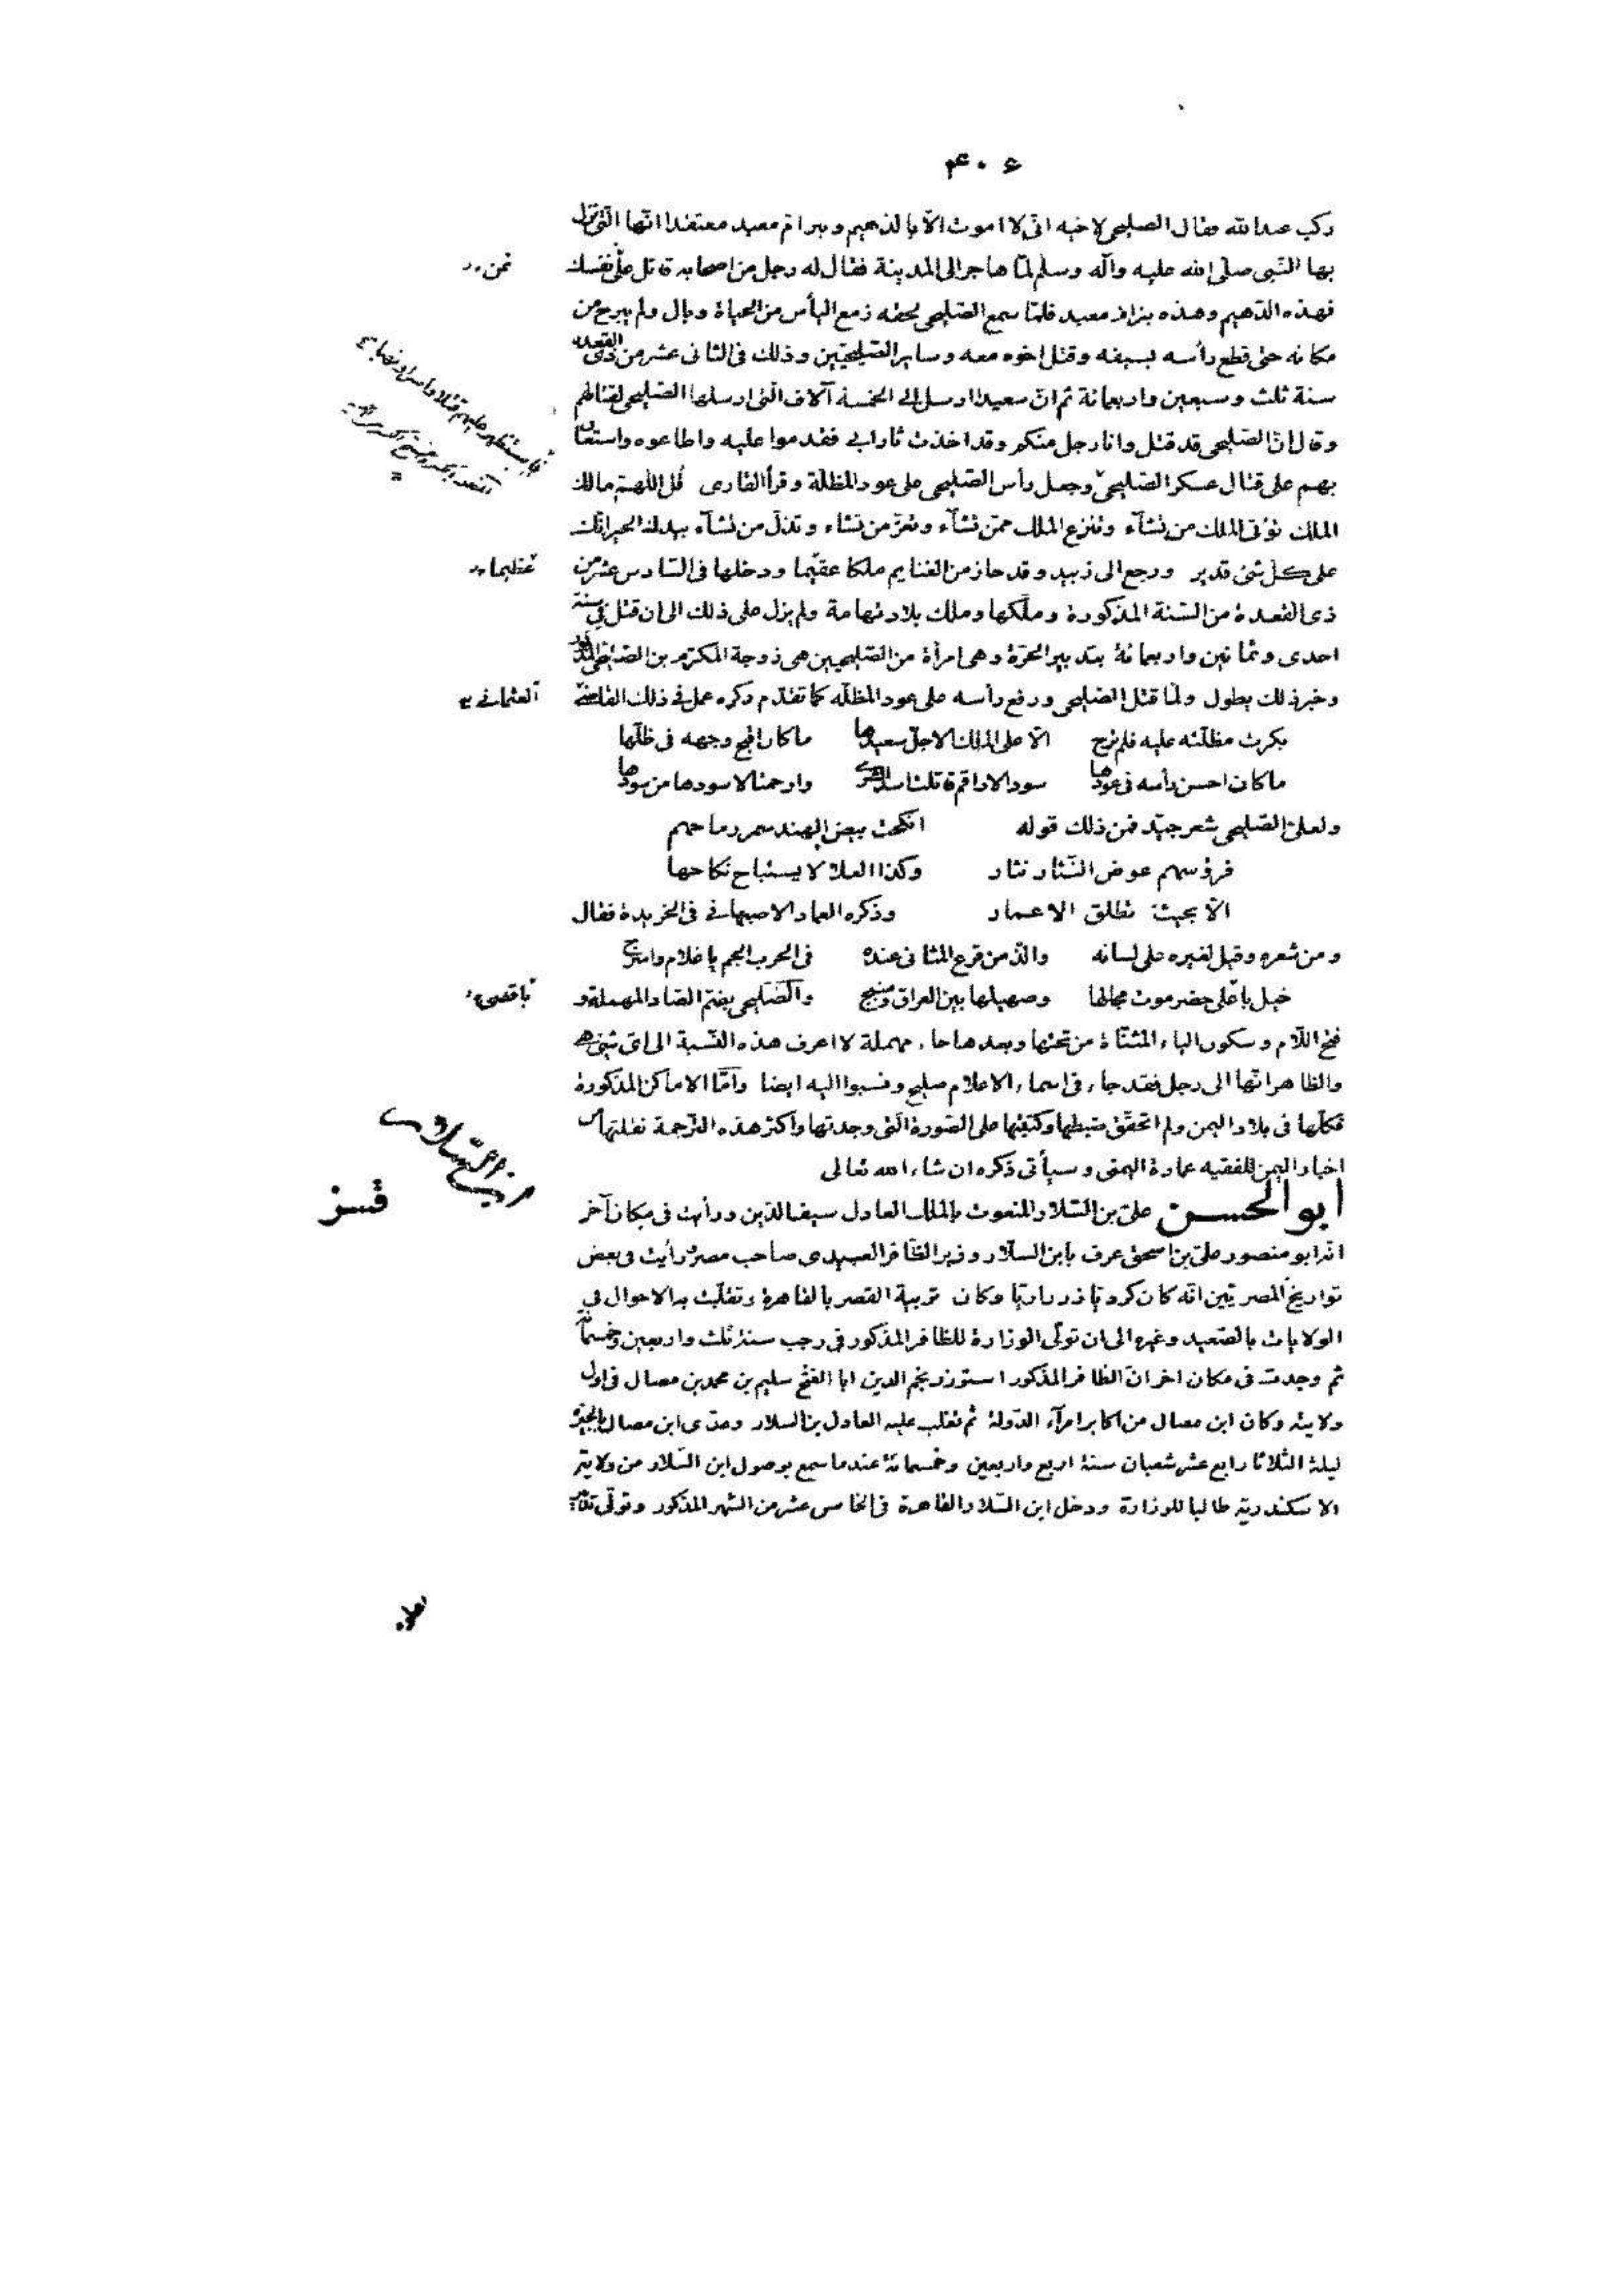 ۴۰۶
ركب عبدالله فقال الصليحى لاخيه انى لا اموت الّا بالدهيم وببرام معبد معتقدا انّها الّتى نزل
بها النّبى صلّى الله عليه وآله وسلم لمّا هاجر الى المدينة فقال له رجل من اصحابه قاتل على نفسك
فهذه الدّهيم وهذه بئر ام معبد فلمّا سمع الصّليحى لحقه زمع اليأس من الحياة وبال ولم يبرح من
مكانه حتى قطع رأسه بسيفه وقتل اخوه معه وساير الصّليحيّين وذلك فى الثانى عشر من ذى القعدة
سنة ثلث وسبعين واربعمائة ثم انّ سعيدا ارسل الى الخمسة آلاف الّتى ارسلها الصّليحى لقتالهم
وقال انّ الصّليحى قد قتل وانا رجل منكم وقد اخذت ثار ابى فقدموا عليه واطاعوه واستعان
بهم على قتال عسكر الصّليحىّ وجعل رأس الصّليحى على عود المظلّة وقرأ القارى قُل اللّهمّ مالك
الملك تؤتى الملك من تشآء وتنزع الملك ممّن تشآء وتعزّ من تشاء وتذلّ من تشآء بيدك الخير انّك
على كلّ شئ قدير ورجع الى زبيد وقد حاز من الغنايم ملكا عقيما ودخلها فى السّادس عشر من
ذى القعدة من السّنة المذكورة وملكها وملك بلاد تهامة ولم يزل على ذلك الى ان قتل فى سنة
احدى وثمانين واربعمائة بتدبير الحرّة وهى امرأة من الصّليحيين هى زوجة المكرّم بن الصّليحى المذكور
وخبر ذلك يطول ولمّا قتل الصّليحى ورفع رأسه على عود المظلّه كما تقدّم ذكره عمل فى ذلك القاضى
بكرت مظلّته عليه فلم ترح الّا على الملك الاجلّ سعيدها ما كان اقبح وجهه فى ظلّها
ما كان احسن رأسه فى عودها سود الاراقم قاتلت اسد الشرى وارحمتا لاسودها من سودها
ولعلىّ الصّليحى شعر جيّد فمن ذلك قوله انكحت بيض الهند سمر رماحهم
فرؤسهم عوض النّثار نثار وكذا العلا لا يستباح نكاحها
الّا بحيث تطلق الاعمار وذكره العماد الاصبهانى فى الخريدة فقال
ومن شعره وقيل لغيره على لسانه والذّ من قرع المثانى عنده فى الحرب الجم يا غلام واسرج
خيل باعلى حضرموت مجالها وصهيلها بين العراق ومنبج والصّليحى بضمّ الصّاد المهملة و
فتح اللّام وسكون الياء المثنّاة من تحتها وبعدها حاء مهملة لا اعرف هذه النّسبة الى اى شئ هى
والظاهر انّها الى رجل فقد جاء فى اسماء الاعلام صليح ونسبوا اليه ايضا وامّا الاماكن المذكورة
فكلّها فى بلاد اليمن ولم اتحقّق ضبطها وكتبتها على الصّورة الّتى وجدتها واكثر هذه الترجمة نقلتها من
اخبار اليمن للفقيه عمارة اليمنى وسيأتى ذكره ان شاء الله تعالى
ابو الحسن على بن السّلار المنعوت بالملك العادل سيف الدّين ورأيت فى مكان آخر
انّه ابو منصور علىّ بن اسحق عرف بابن السلّار وزير الظّافر العبيدى صاحب مصر رأيت فى بعض
تواريخ المصريّين انّه كان كرديّا زرزاريّا وكان تربية القصر بالقاهرة وتقلّبت به الاحوال فى
الولايات بالصّعيد وغيره الى ان تولّى الوزارة للظافر المذكور فى رجب سنة ثلث واربعين وخمسمائة
ثم وجدت فى مكان اخر انّ الظافر المذكور استوزر نجم الدين ابا الفتح سليم بن محمد بن مصال فى اول
ولايته وكان ابن مصال من اكابر امرآء الدّولة ثم تغلب عليه العادل بن السلار وعدّى ابن مصال الى الجيزة
ليلة الثّلاثا رابع عشر شعبان سنة اربع واربعين وخمسمائة عندما سمع بوصول ابن السّلار من ولاية
الاسكندرية طالبا للوزارة ودخل ابن السّلار القاهرة فى الخامس عشر من الشهر المذكور وتولّى تدبير
ثمن
عظيما
العثمانى
باقصى
ابن السّلار
قسز